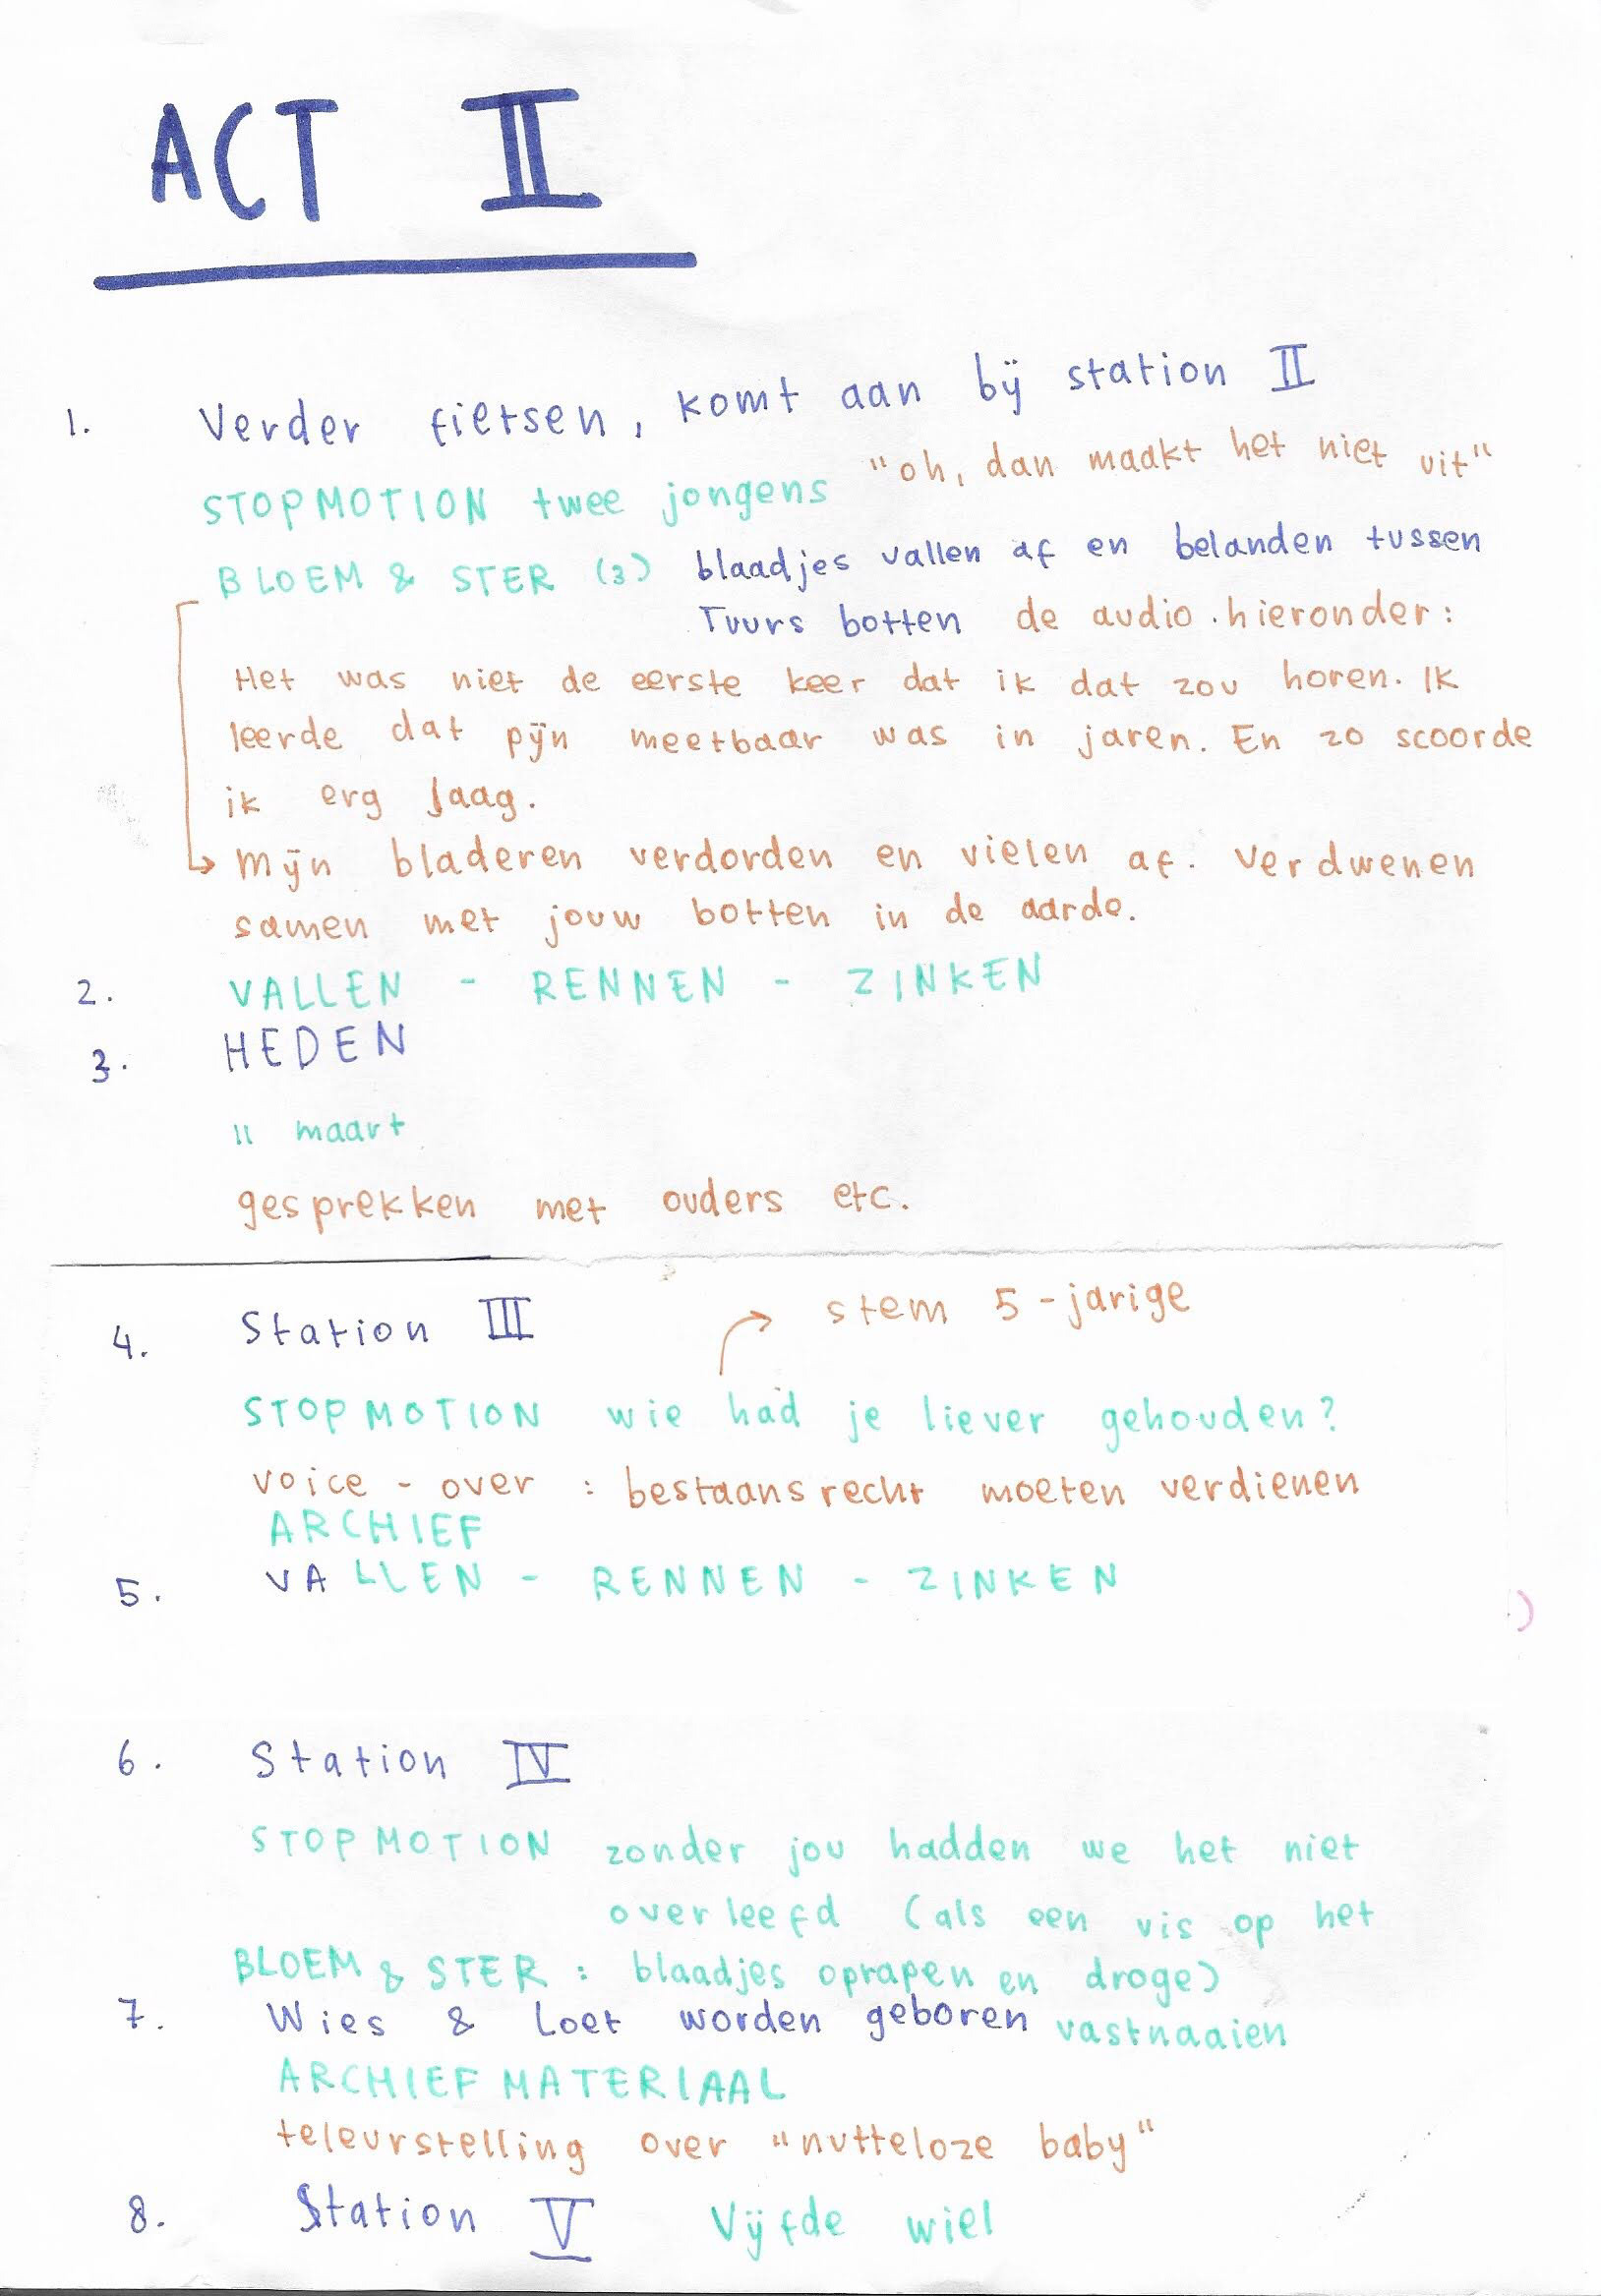 ACT II
1. Verder fietsen, komt aan bij station II
STOPMOTION twee jongens "oh, dan maakt het niet uit"
BLOEM & STER (3) blaadjes vallen af en belanden tussen
Tuurs botten de audio hieronder:
Het was niet de eerste keer dat ik dat zou horen. Ik
leerde dat pijn meetbaar was in jaren. En zo scoorde
ik erg laag.
Mijn bladeren verdorden en vielen af. Verdwenen
samen met jouw botten in de aarde.
2. VALLEN - RENNEN - ZINKEN
3. HEDEN
11 maart
gesprekken met ouders etc.
4. Station III
stem 5-jarige
STOPMOTION wie had je liever gehouden?
voice-over: bestaansrecht moeten verdienen
ARCHIEF
5. VALLEN - RENNEN - ZINKEN
6. Station IV
STOPMOTION zonder jou hadden we het niet
overleefd (als een vis op het
droge)
BLOEM & STER: blaadjes oprapen en
vastnaaien
7. Wies & Loet worden geboren
ARCHIEFMATERIAAL
teleurstelling over "nutteloze baby"
8. Station V Vijfde wiel